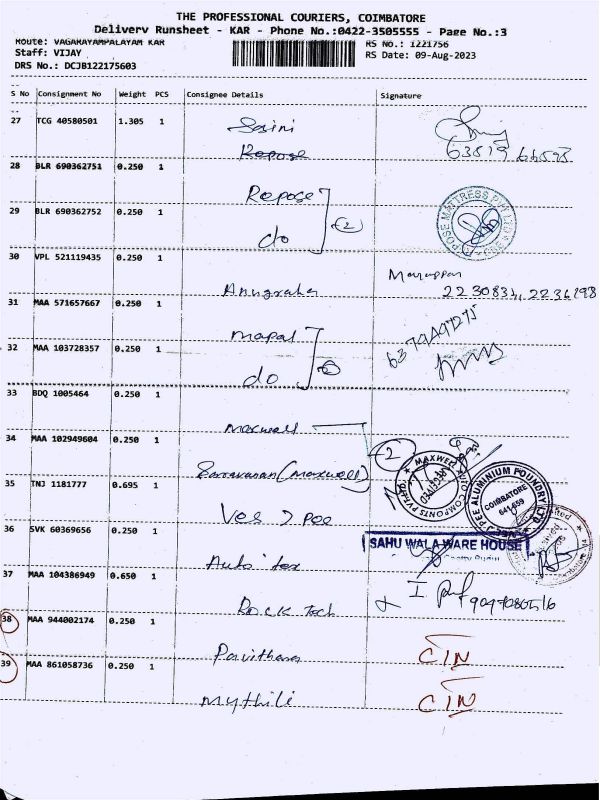 THE PROFESSIONAL COURIERS, COIMBATORE
Delivery Runsheet - KAR - Phone No.:0422-3505555 - Page No.:3
Route: VAGARAYAMPALAYAM KAR
RS No.: 1221756
Staff: VIJAY
RS Date: 09-Aug-2023
DRS No.: DCJB122175603
S No Consignment No Weight PCS Consignee Details Signature
27 TCG 40580501 1.305 1 Saini
Repose
28 BLR 690362751 0.250 1
Repose
29 BLR 690362752 0.250 1
do (2)
30 VPL 521119435 0.250 1
Anugraha
2230834, 2236198
31 MAA 571657667 0.250 1
mapal
32 MAA 103728357 0.250 1
do
33 BDQ 1005464 0.250 1
maxwell
34 MAA 102949604 0.250 1
2
Saravanan (maxwell)
35 TNJ 1181777 0.695 1
COIMBATORE
641659
36 SVK 60369656 0.250 1
SAHU WALA WARE HOUSE
Auto tex
37 MAA 104386949 0.650 1
Rock Tech
38 MAA 944002174 0.250 1
Pavithra
CIN
39 MAA 861058736 0.250 1
Mythili
CIN